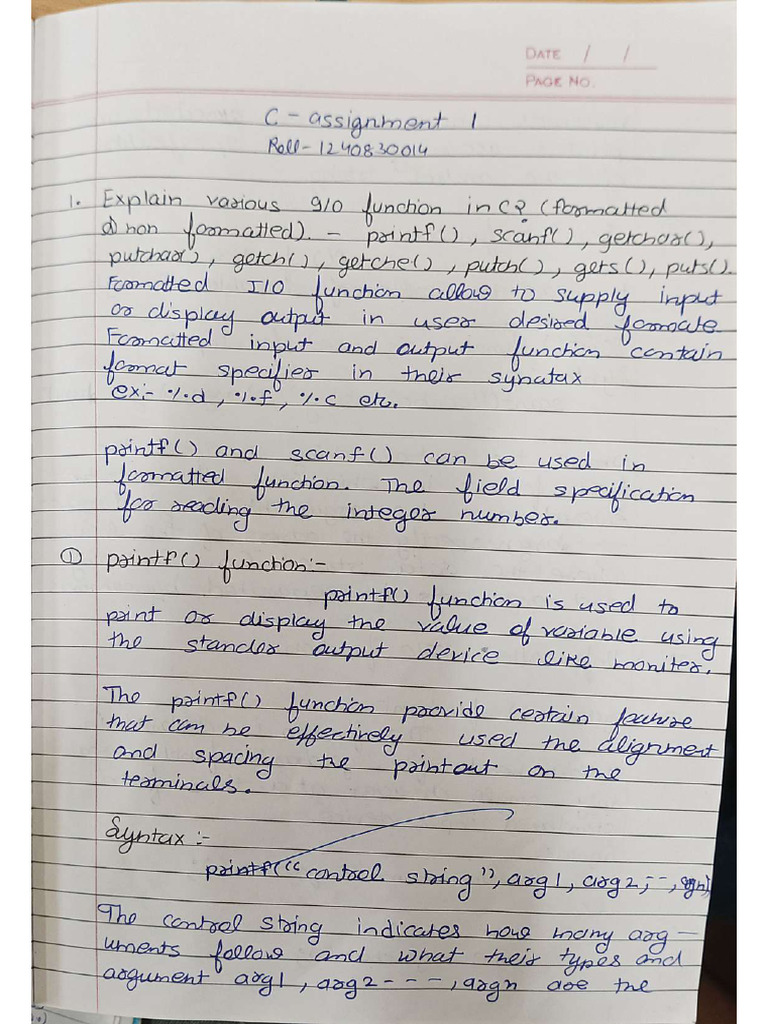 DATE / /
PAGE NO.
C - assignment 1
Roll - 1240830014
1. Explain various I/O function in C? (formatted
d) non formatted) - printf(), scanf(), getchar(),
putchar(), getch(), getche(), putch(), gets(), puts().
Formatted I/O function allow to supply input
or display output in user desired formate
Formatted input and output function contain
format specifier in their synatax
ex:- %d, %f, %c etc.
printf() and scanf() can be used in
formatted function. The field specification
for reading the integer number.
① printf() function:-
printf() function is used to
print or display the value of variable using
the stander output device like moniter.
The printf() function provide certain feature
that can be effectively used the alignment
and spacing the printout on the
terminals.
Syntax :-
printf("control string", arg1, arg2, --, argn)
The control string indicates how many arg -
uments follow and what their types and
argument arg1, arg2 - - - -, argn are the